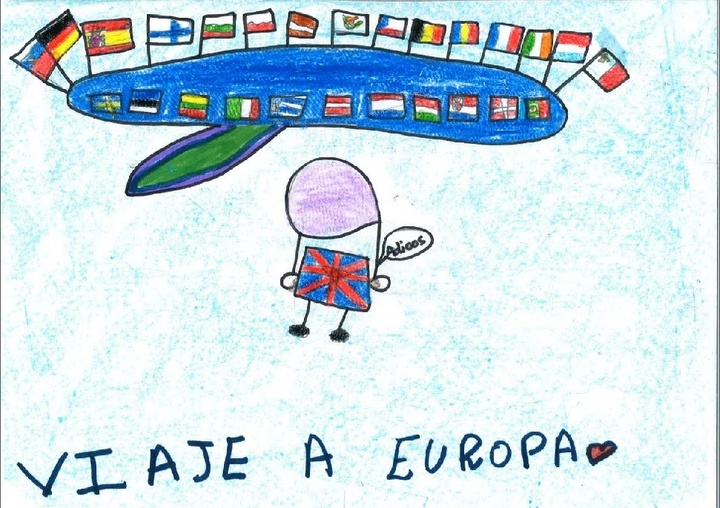 Adioos
VIAJE A EUROPA